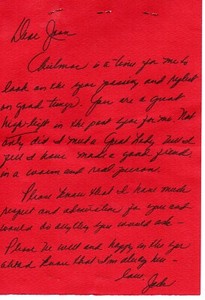 Dear Jean
Christmas is a time for me to
look on the year passing and reflect
on good things. You are a great
high light in the past year for me Not
only did I meet a Great Lady, but I
feel I have made a good friend
in a warm and real person.
Please know that I have much
respect and admiration for you and
would do anything you would ask -
Please be well and happy in the year
ahead know that I'm always
love
Jack